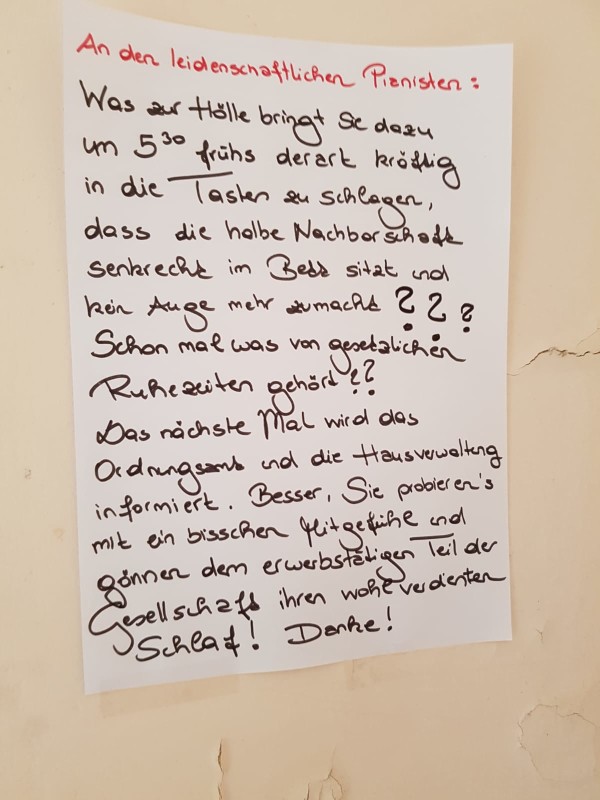 An den leidenschaftlichen Pianisten:
Was zur Hölle bringt Sie dazu
um 5³⁰ frühs derart kräftig
in die Tasten zu schlagen,
dass die halbe Nachbarschaft
senkrecht im Bett sitzt und
kein Auge mehr zumacht ???
Schon mal was von gesetzlichen
Ruhezeiten gehört??
Das nächste Mal wird das
Ordnungsamt und die Hausverwaltung
informiert. Besser, Sie probieren's
mit ein bisschen Mitgefühl und
gönnen dem erwerbstätigen Teil der
Gesellschaft ihren wohlverdienten
Schlaf! Danke!